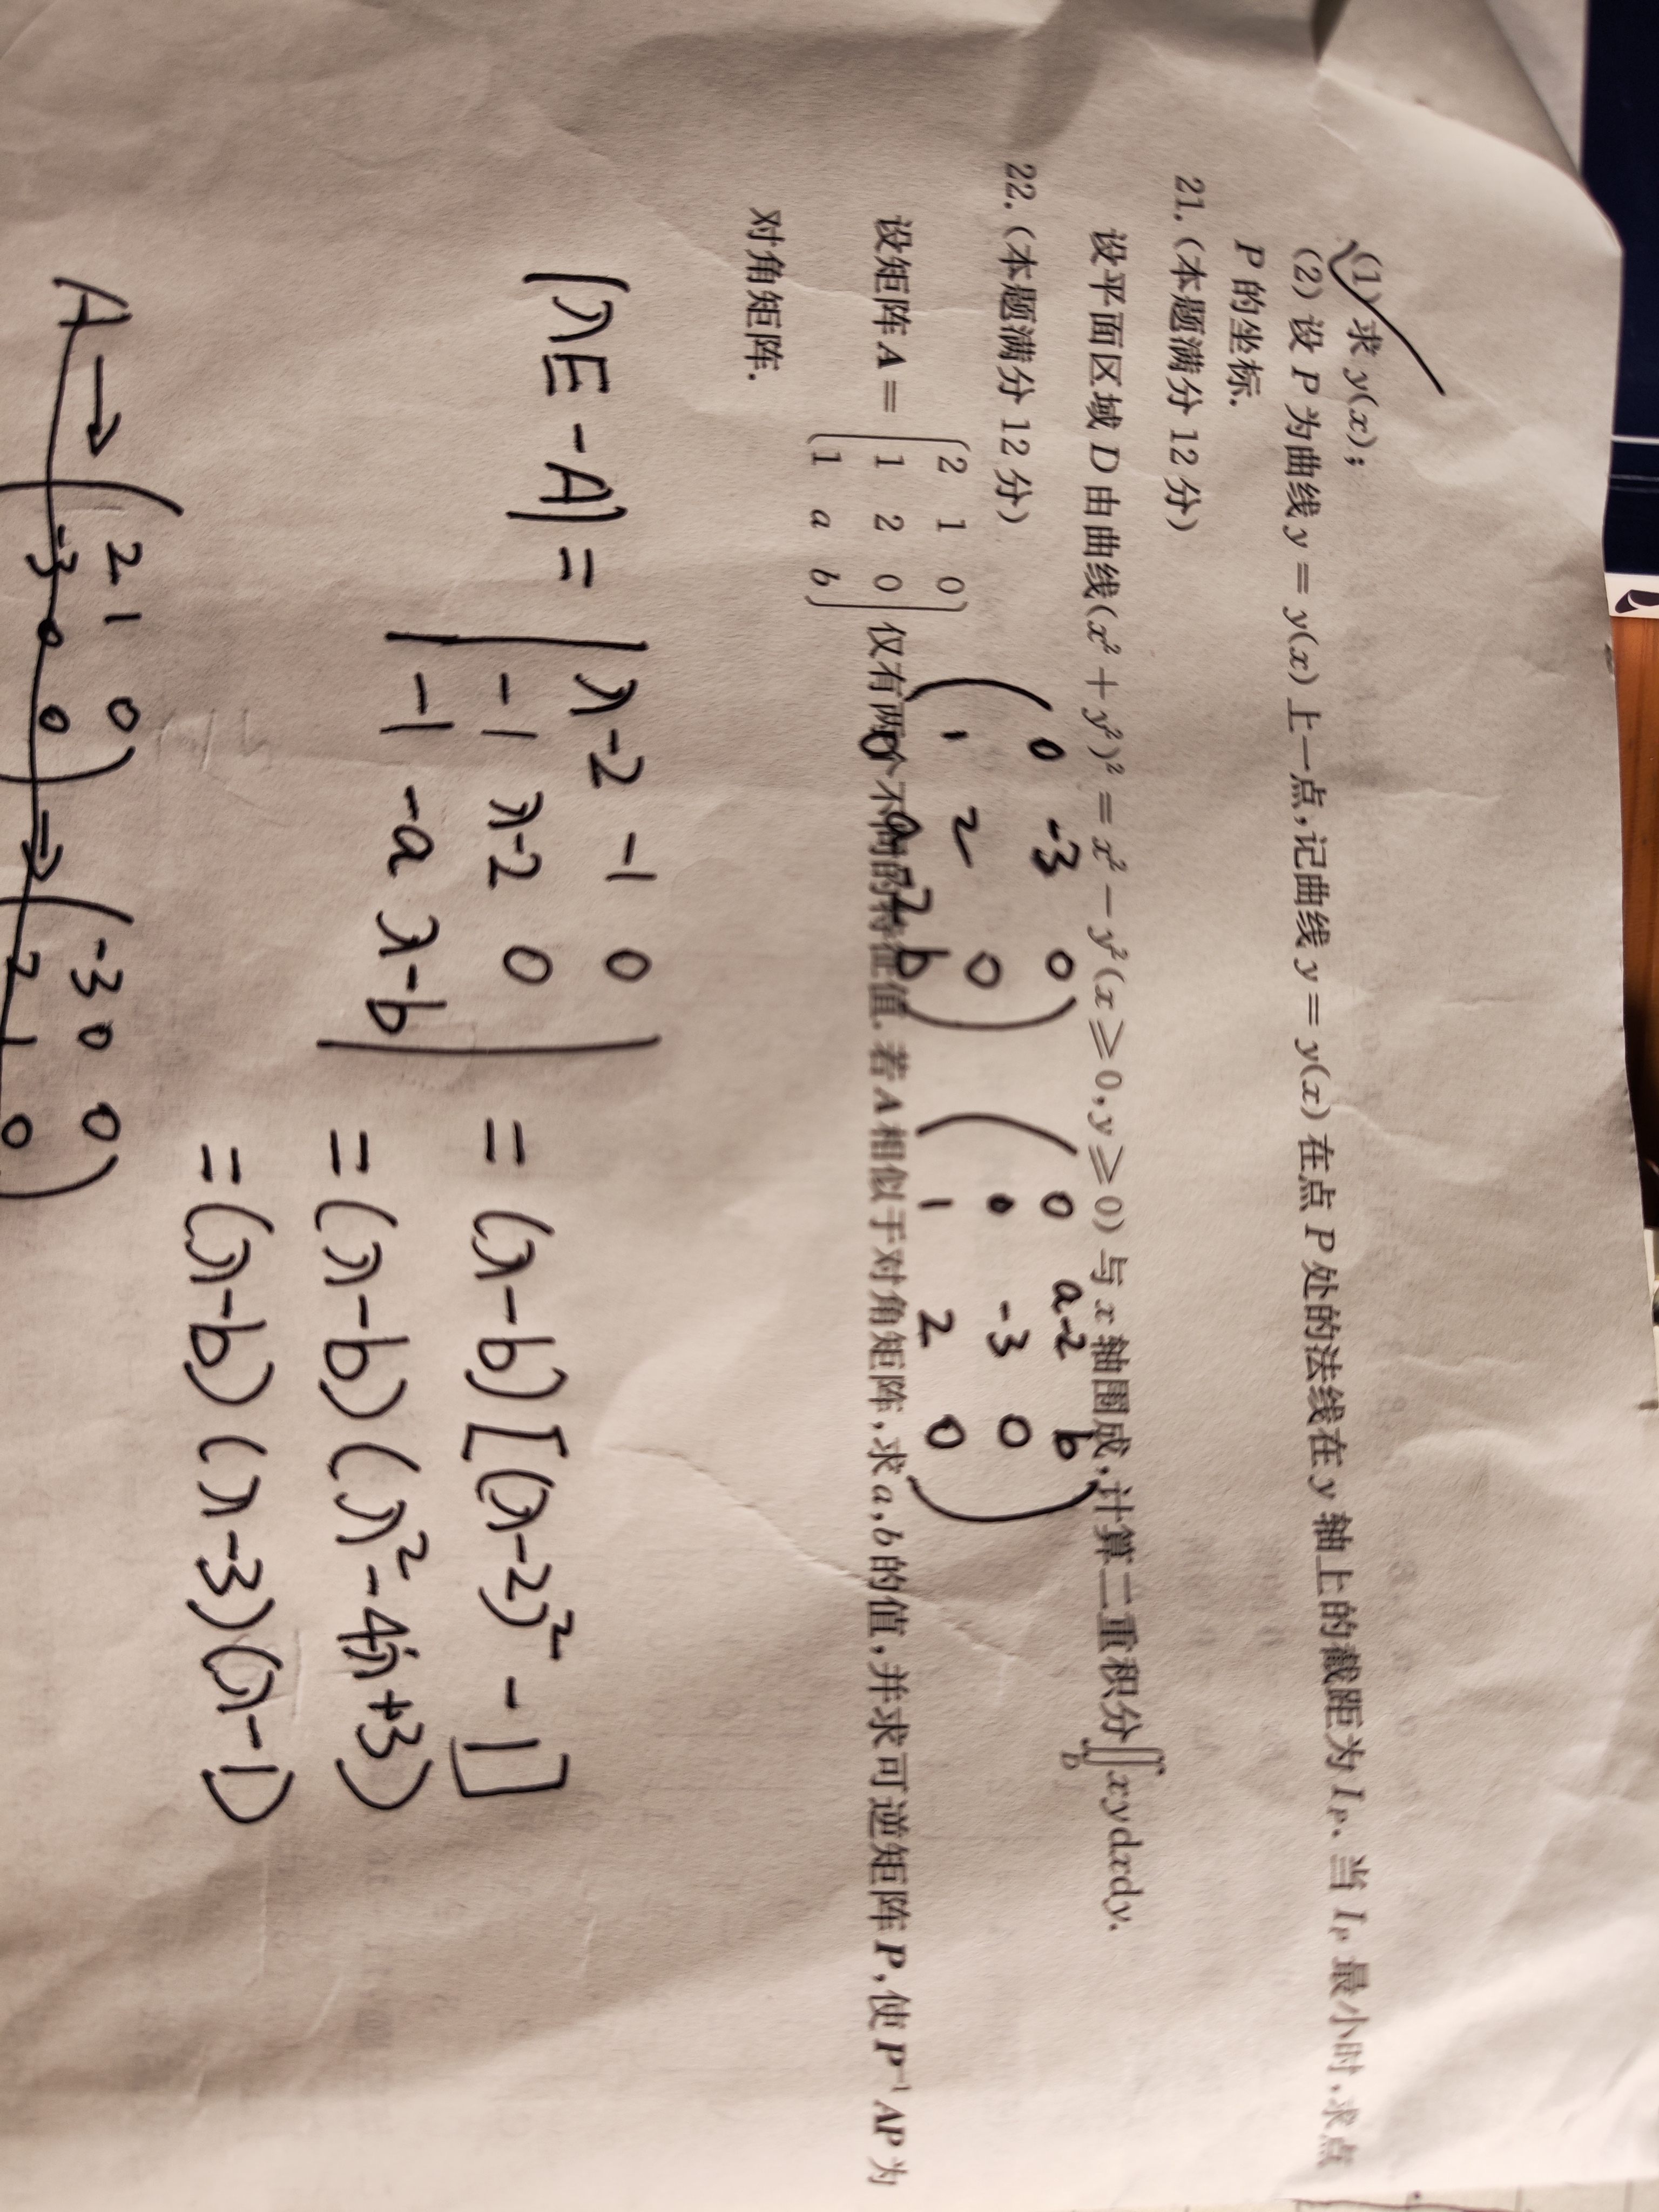 (1) 求 y(x);
(2) 设 P 为曲线 y = y(x) 上一点,记曲线 y = y(x) 在点 P 处的法线在 y 轴上的截距为 I_P. 当 I_P 最小时,求点
P 的坐标.
21. (本题满分 12 分)
设平面区域 D 由曲线(x² + y²)² = x² − y² (x ≥ 0, y ≥ 0) 与 x 轴围成,计算二重积分∬_D xydxdy.
22. (本题满分 12 分)
设矩阵 A = (2 1 0
1 2 0
1 a b) 仅有两个不同的特征值. 若 A 相似于对角矩阵,求 a,b 的值,并求可逆矩阵 P,使 P⁻¹AP 为
对角矩阵.
(0 -3 0
1 2 0
0 a-2 b)
(0 a-2 b
0 -3 0
1 2 0)
|λE-A| = |λ-2 -1 0
-1 λ-2 0
-1 -a λ-b|
= (λ-b)[(λ-2)²-1]
= (λ-b)(λ²-4λ+3)
= (λ-b)(λ-3)(λ-1)
A → (2 1 0
-3 0 0) → (-3 0 0
2 1 0)